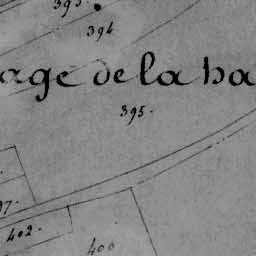 393.
394
age de la ba
395.
97.
402.
400